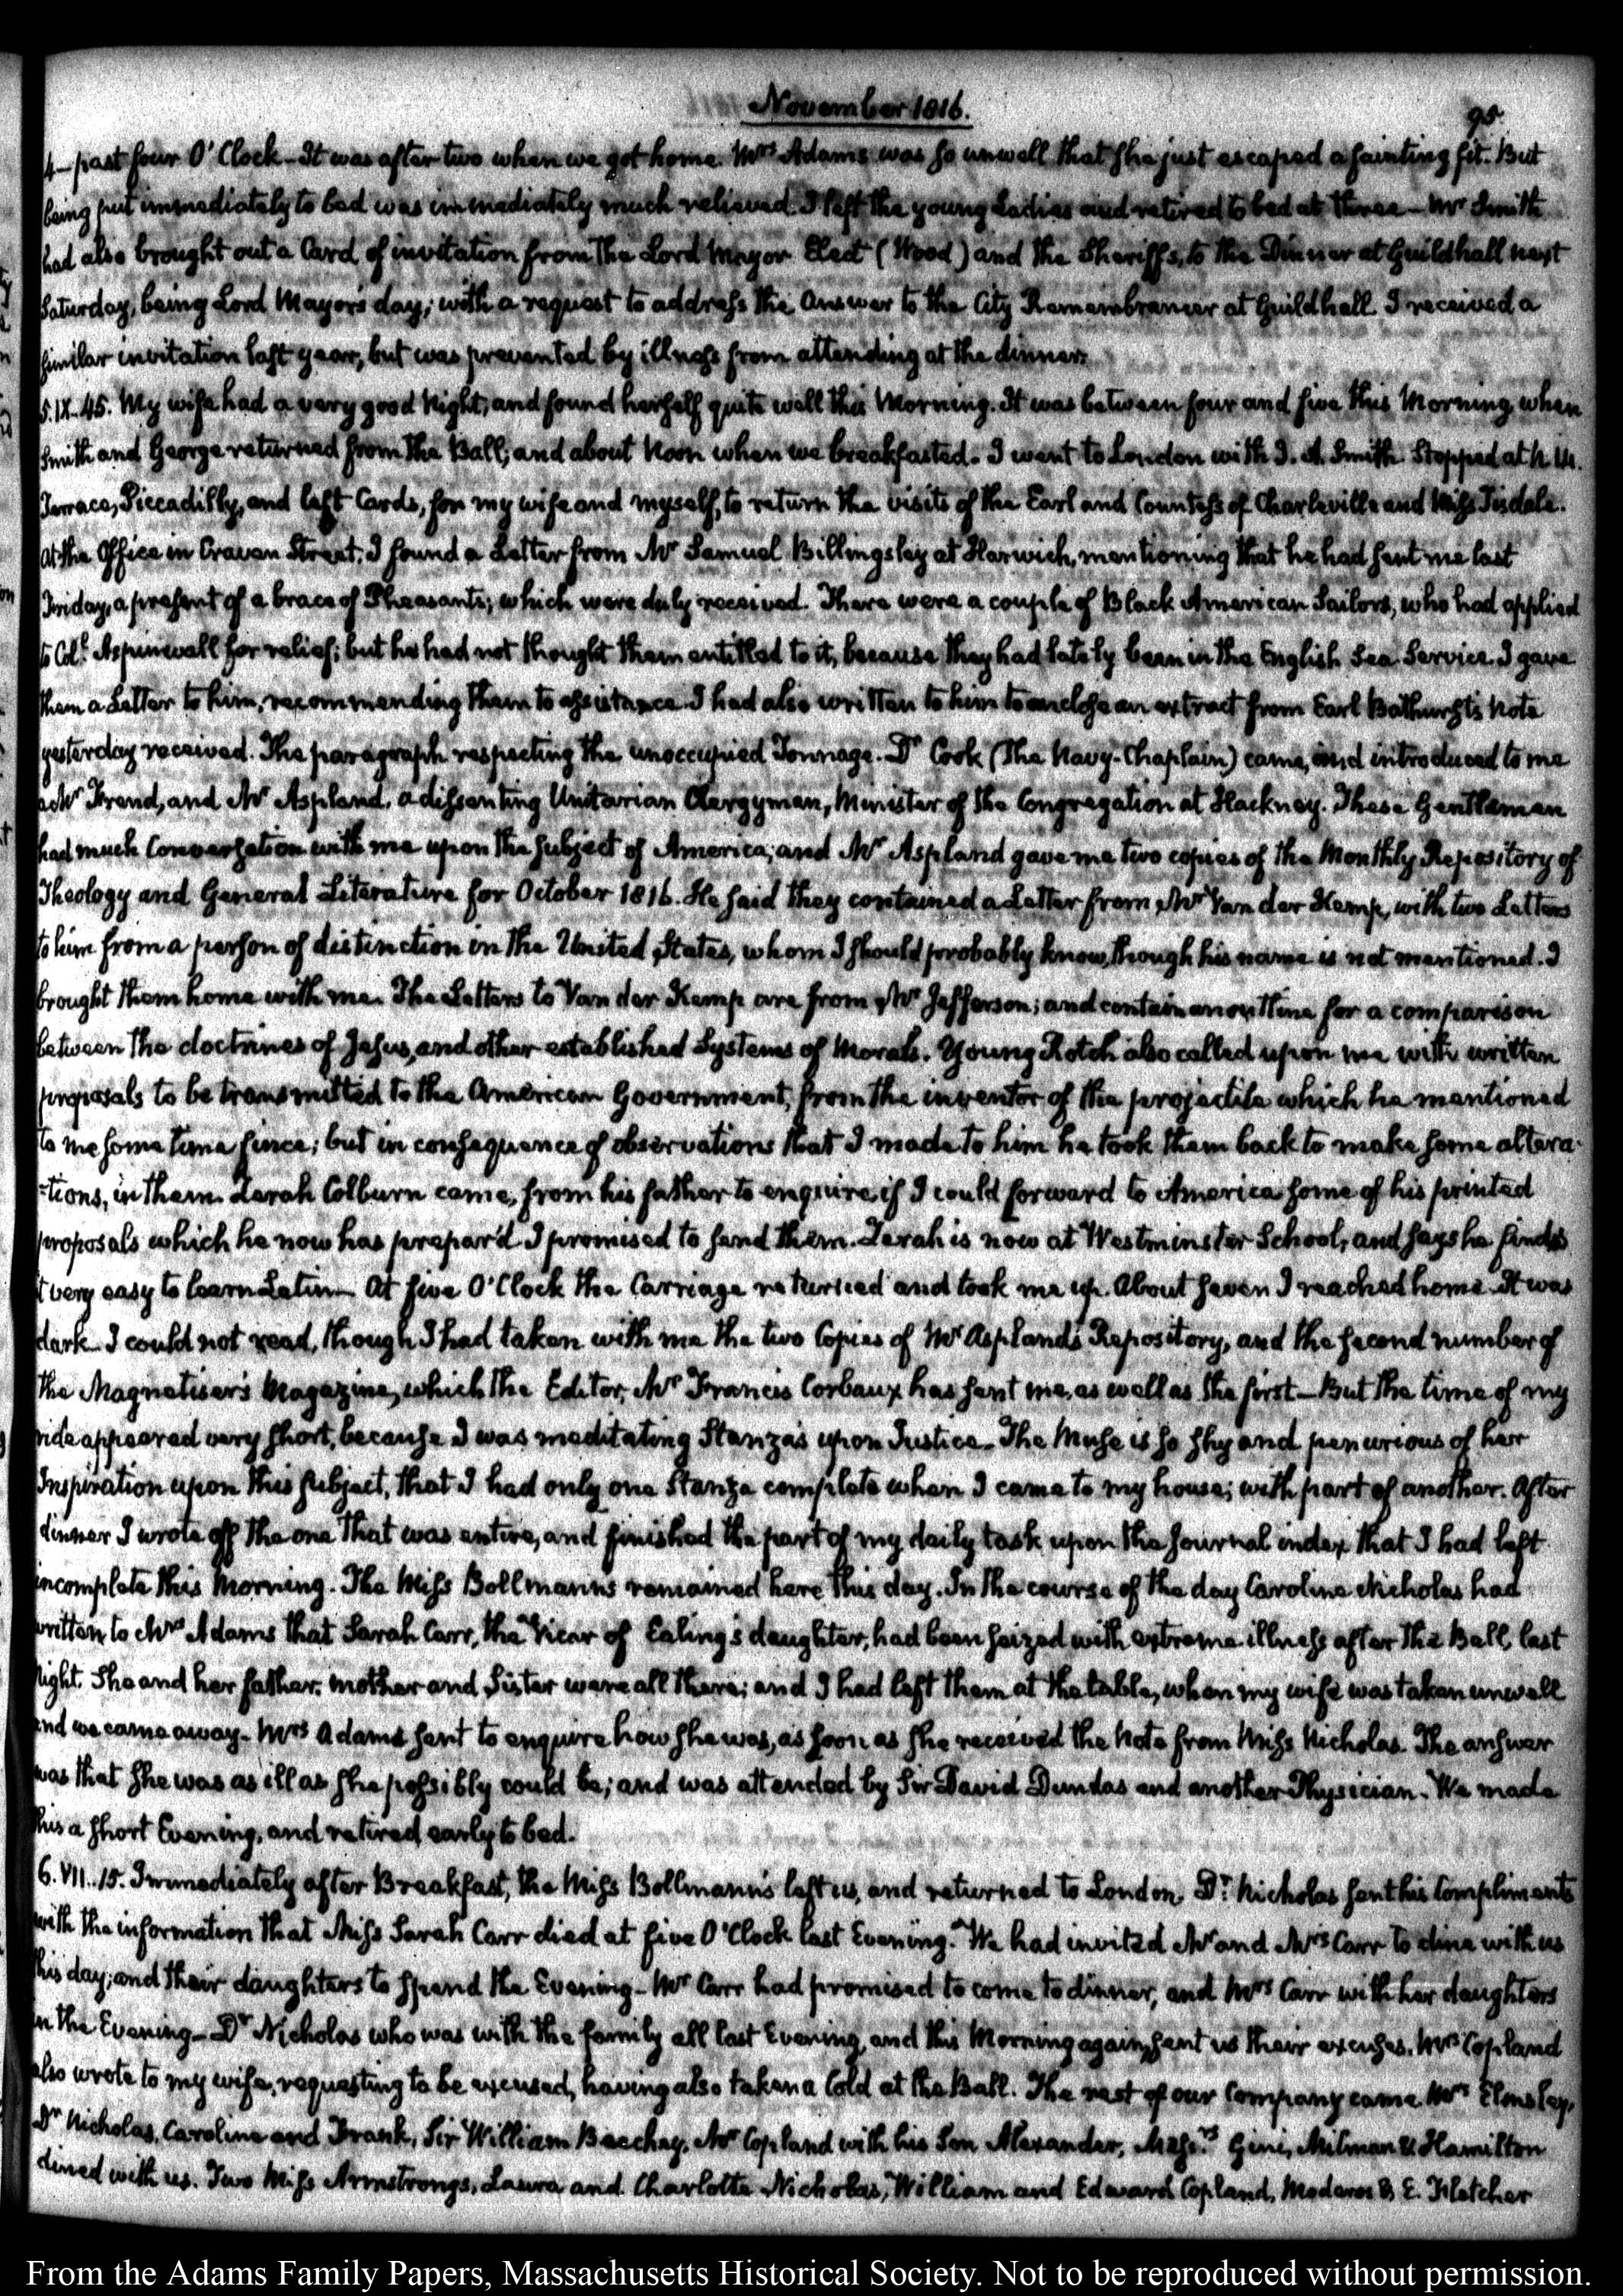 November 1816.
95
4 – past four O'Clock – It was after two when we got home. Mrs Adams was so unwell that she just escaped a fainting fit. But
being put immediately to bed was immediately much relieved. I left the young Ladies and retired to bed at three – Mr Smith
had also brought out a Card of invitation from the Lord Mayor Elect (Wood) and the Sheriffs, to the Dinner at Guildhall next
Saturday, being Lord Mayor's day; with a request to address the Answer to the City Remembrancer at Guildhall. I received a
similar invitation last year, but was prevented by illness from attending at the dinner.
5. IX. 45. My wife had a very good Night, and found herself quite well this Morning. It was between four and five this Morning, when
Smith and George returned from the Ball; and about Noon when we breakfasted. I went to London with J. A. Smith. Stopped at N. 14.
Terrace, Piccadilly, and left Cards, for my wife and myself, to return the visits of the Earl and Countess of Charleville and Miss Tisdale.
At the Office in Craven Street, I found a Letter from Mr Samuel Billingsley at Harwich, mentioning that he had sent me last
Friday, a present of a brace of Pheasants; which were duly received. There were a couple of Black American Sailors, who had applied
to Coll. Aspinwall for relief; but he had not thought them entitled to it, because they had lately been in the English Sea Service. I gave
them a Letter to him, recommending them to assistance. I had also written to him to enclose an extract from Earl Bathurst's Note
yesterday received. The paragraph respecting the unoccupied Tonnage. Dr Cook (The Navy-Chaplain) came, and introduced to me
a Mr Frend, and Mr Aspland, a dissenting Unitarian Clergyman, Minister of the Congregation at Hackney. These Gentlemen
had much Conversation with me upon the subject of America; and Mr Aspland gave me two copies of the Monthly Repository of
Theology and General Literature for October 1816. He said they contained a Letter from Mr Van der Kemp, with two Letters
to him from a person of distinction in the United States, whom I should probably know, though his name is not mentioned. I
brought them home with me. The Letters to Van der Kemp are from Mr Jefferson; and contain an outline for a comparison
between the doctrines of Jesus, and other established Systems of Morals. Young Rotch also called upon me with written
proposals to be transmitted to the American Government, from the inventor of the projectile which he mentioned
to me some time since; but in consequence of observations that I made to him he took them back to make some altera-
-tions, in them. Zerah Colburn came, from his father to enquire, if I could forward to America some of his printed
proposals which he now has prepar'd. I promised to send them. Zerah is now at Westminster School, and says he finds
it very easy to learn Latin – At five O'Clock the Carriage returned and took me up. About seven I reached home. It was
dark. I could not read, though I had taken with me the two Copies of Mr Aspland's Repository, and the second number of
the Magnetiser's Magazine, which the Editor, Mr Francis Corbaux has sent me, as well as the first – But the time of my
ride appeared very short, because I was meditating Stanzas upon Justice. The Muse is so shy and penurious of her
Inspiration upon this subject, that I had only one Stanza complete when I came to my house; with part of another. After
dinner I wrote off the one that was entire, and finished the part of my daily task upon the Journal index that I had left
incomplete this Morning. The Miss Bollmanns remained here this day. In the course of the day Caroline Nicholas had
written to Mrs Adams that Sarah Carr, the Vicar of Ealing's daughter, had been seized with extreme illness after the Ball, last
Night. She and her father, mother and Sister were all there; and I had left them at the table, when my wife was taken unwell
and we came away. Mrs Adams sent to enquire how she was, as soon as she received the Note from Miss Nicholas. The answer
was that she was as ill as she possibly could be; and was attended by Sir David Dundas and another Physician. We made
this a short Evening, and retired early to bed.
6. VII. 15. Immediately after Breakfast, the Miss Bollmann's left us, and returned to London. Dr. Nicholas sent his Compliments
with the information that Miss Sarah Carr died at five O'Clock last Evening. We had invited Mr and Mrs Carr to dine with us
this day; and their daughters to spend the Evening – Mr Carr had promised to come to dinner, and Mrs Carr with her daughters
in the Evening – Dr Nicholas who was with the family all last Evening, and this Morning again, sent us their excuses. Mrs Copland
also wrote to my wife, requesting to be excused, having also taken a Cold at the Ball. The rest of our Company came. Mrs Elmsley,
Dr Nicholas, Caroline and Frank, Sir William Beechey, Mr Copland with his Son Alexander, Messrs Gini, Milman & Hamilton
dined with us. Two Miss Armstrongs, Laura and Charlotte Nicholas, William and Edward Copland, B. E. Fletcher
From the Adams Family Papers, Massachusetts Historical Society. Not to be reproduced without permission.